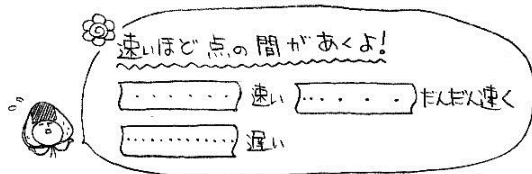 速いほど点の間があくよ!
速い だんだん速く
遅い